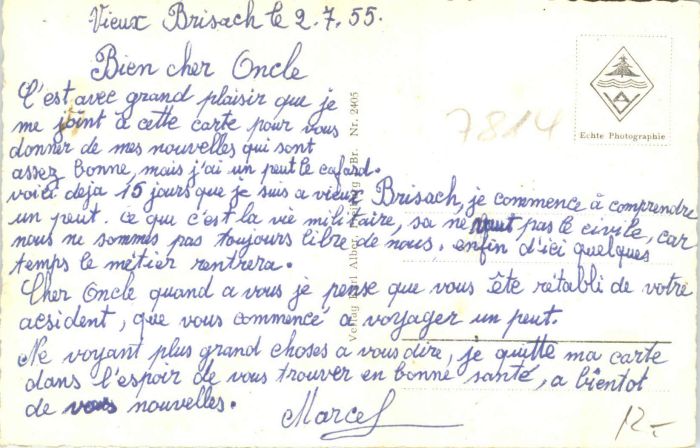 Vieux Brisach le 2.7.55.
Bien cher Oncle
C'est avec grand plaisir que je
me joint à cette carte pour vous
donner de mes nouvelles qui sont
assez bonne, mais j'ai un peut le cafard.
voici deja 15 jours que je suis a vieux Brisach, je commence à comprendre
un peut. ce que c'est la vie militaire, sa ne vaut pas le civile, car
nous ne sommes pas toujours libre de nous. enfin d'ici quelques
temps le métier rentrera.
Cher Oncle quand a vous je pense que vous ête rétabli de votre
acsident, que vous commencé a voyager un peut.
Ne voyant plus grand choses a vous dire, je quitte ma carte
dans l'espoir de vous trouver en bonne santé, a bientot
de vous nouvelles.
Marcel
7814
Echte Photographie
Verlag Alber, Br. Nr. 2405
12.-